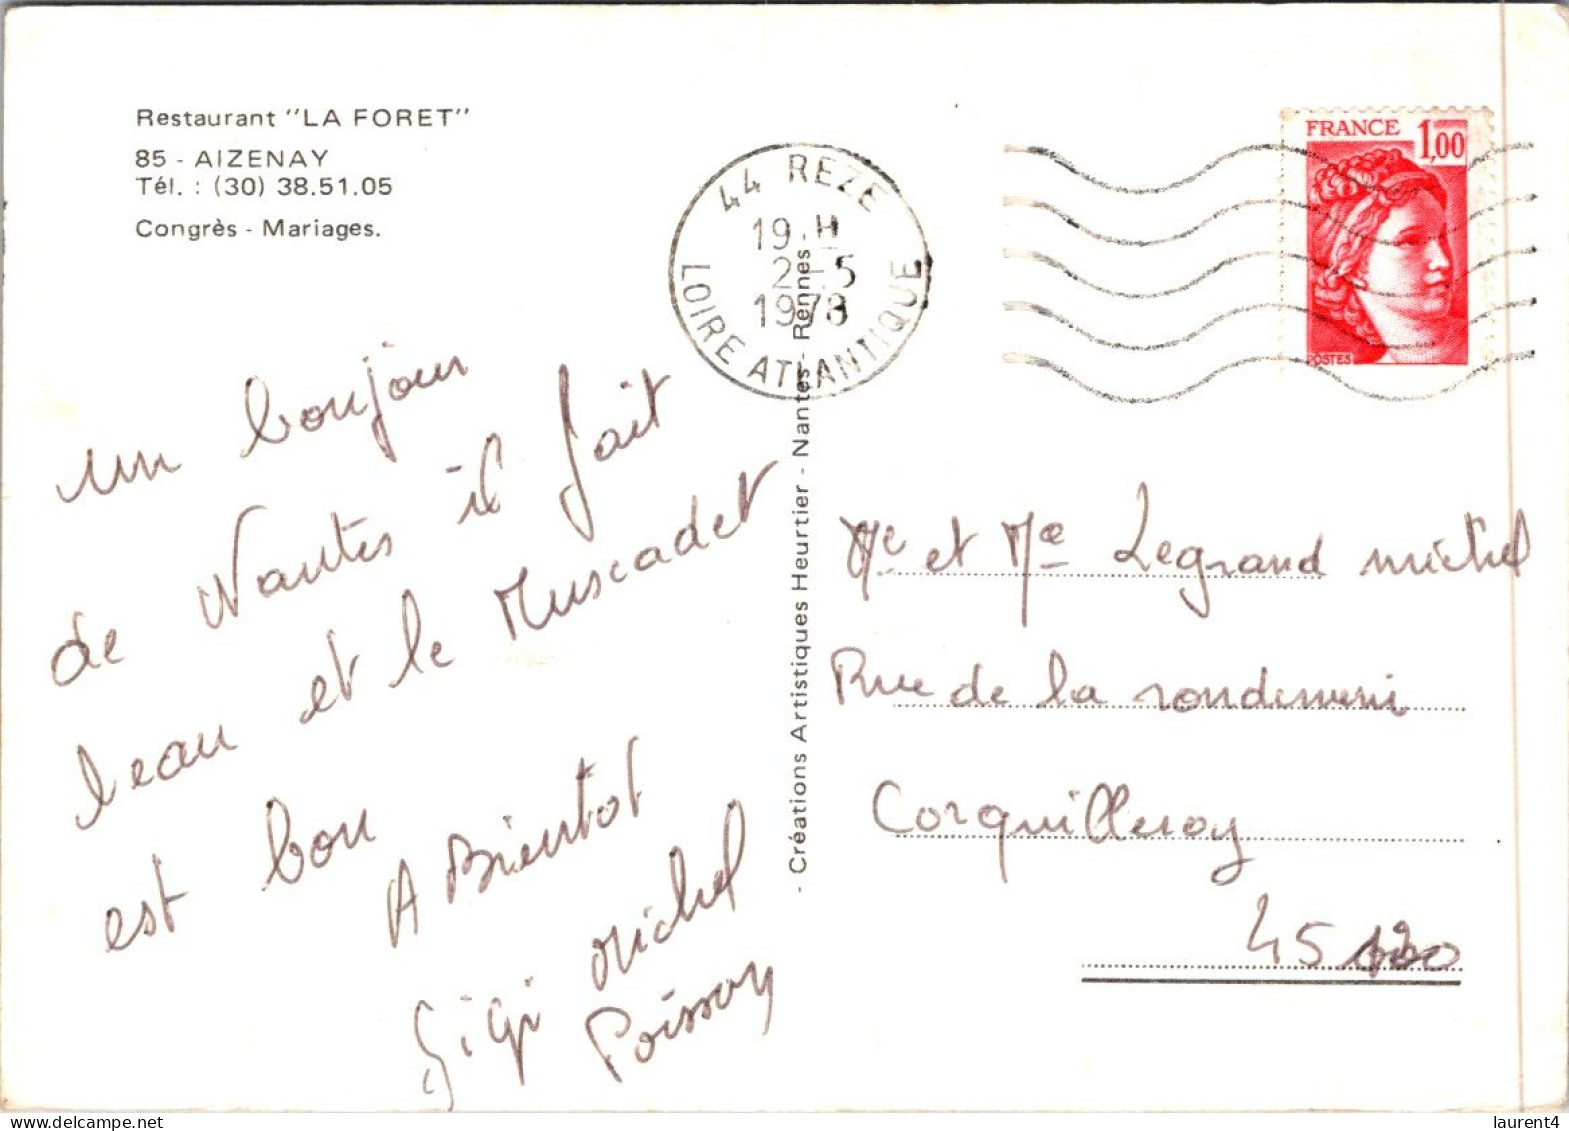 Restaurant "LA FORET"
85 - AIZENAY
Tél. : (30) 38.51.05
Congrès - Mariages.
44 REZE
19 H
2 - 5
1978
LOIRE ATLANTIQUE
FRANCE 1,00
POSTES
un bonjour
de Nantes il fait
beau et le Muscadet
est bon
A Bientot
Gigi Michel
Poisson
- Créations Artistiques Heurtier - Nantes - Rennes
Mr et Me Legrand michel
Rue de la
Corquilleroy
45120
laurent4